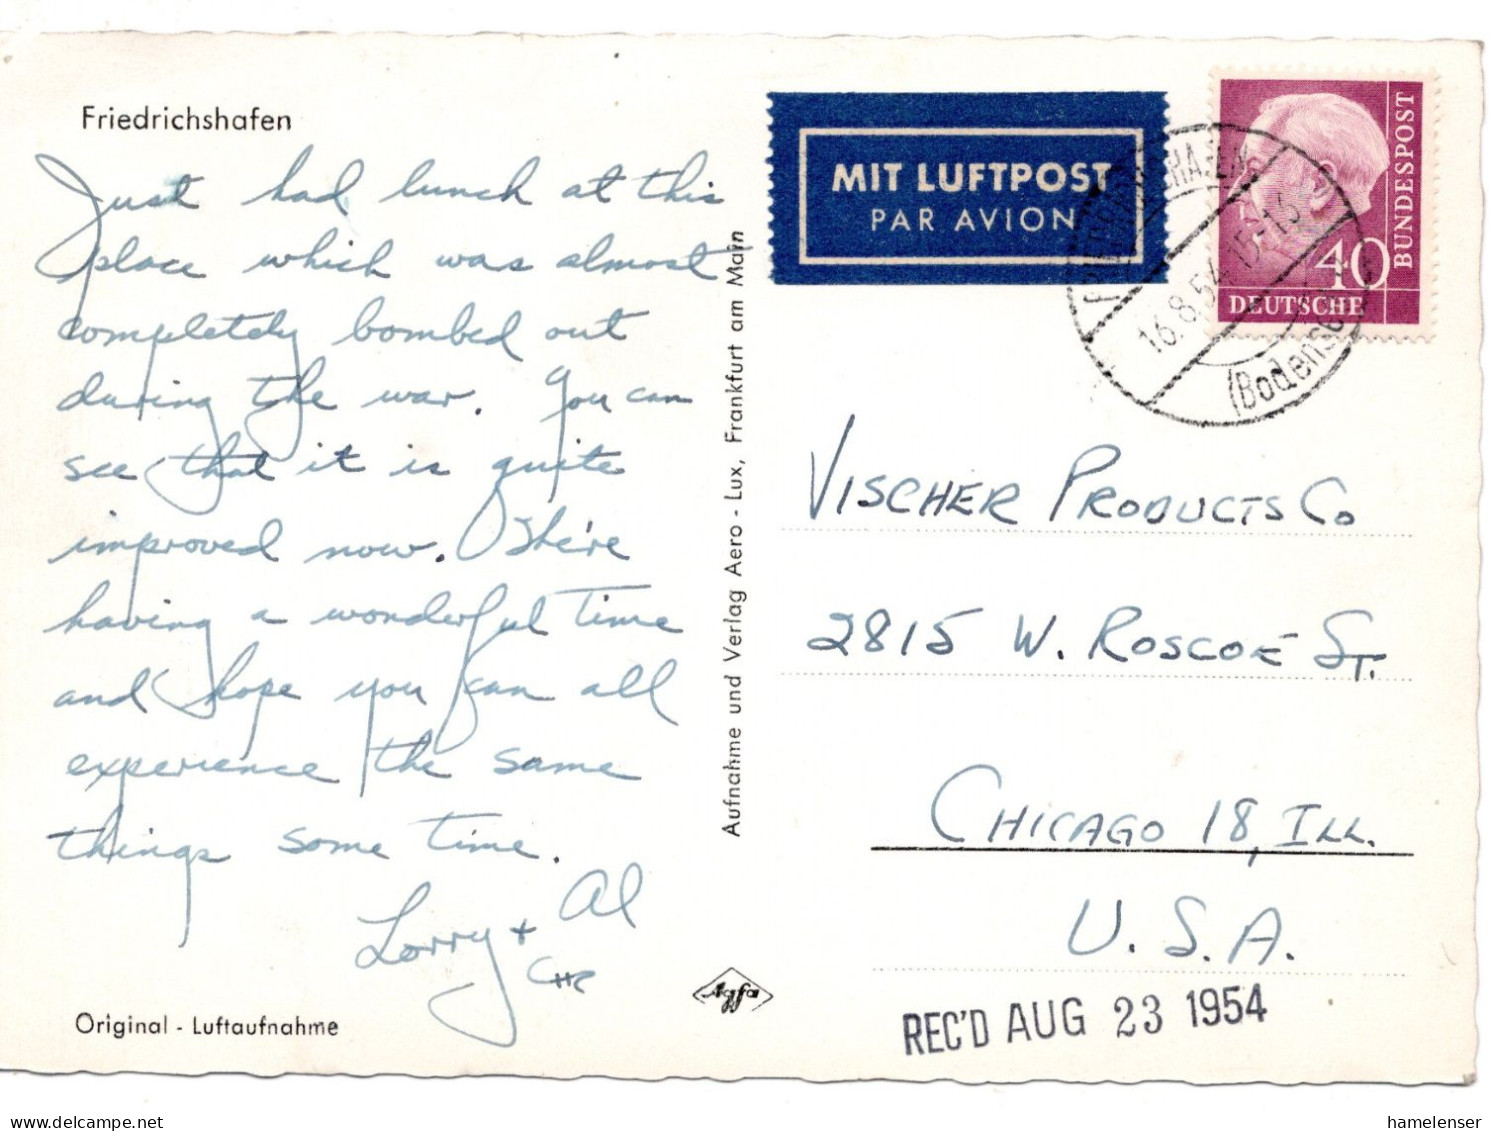 Friedrichshafen
Just had lunch at this
place which was almost
completely bombed out
during the war. You can
see that it is quite
improved now. We're
having a wonderful time
and hope you can all
experience the same
things some time.
Lorry + Al
Original - Luftaufnahme
Aufnahme und Verlag Aero - Lux, Frankfurt am Main
Agfa
MIT LUFTPOST
PAR AVION
DEUTSCHE
BUNDESPOST
40
FRIEDRICHSHAFEN
16.8.54.15-16
(Bodensee)
VISCHER PRODUCTS CO
2815 W. ROSCOE ST.
CHICAGO 18, ILL.
U.S.A.
REC'D AUG 23 1954
hamelenser